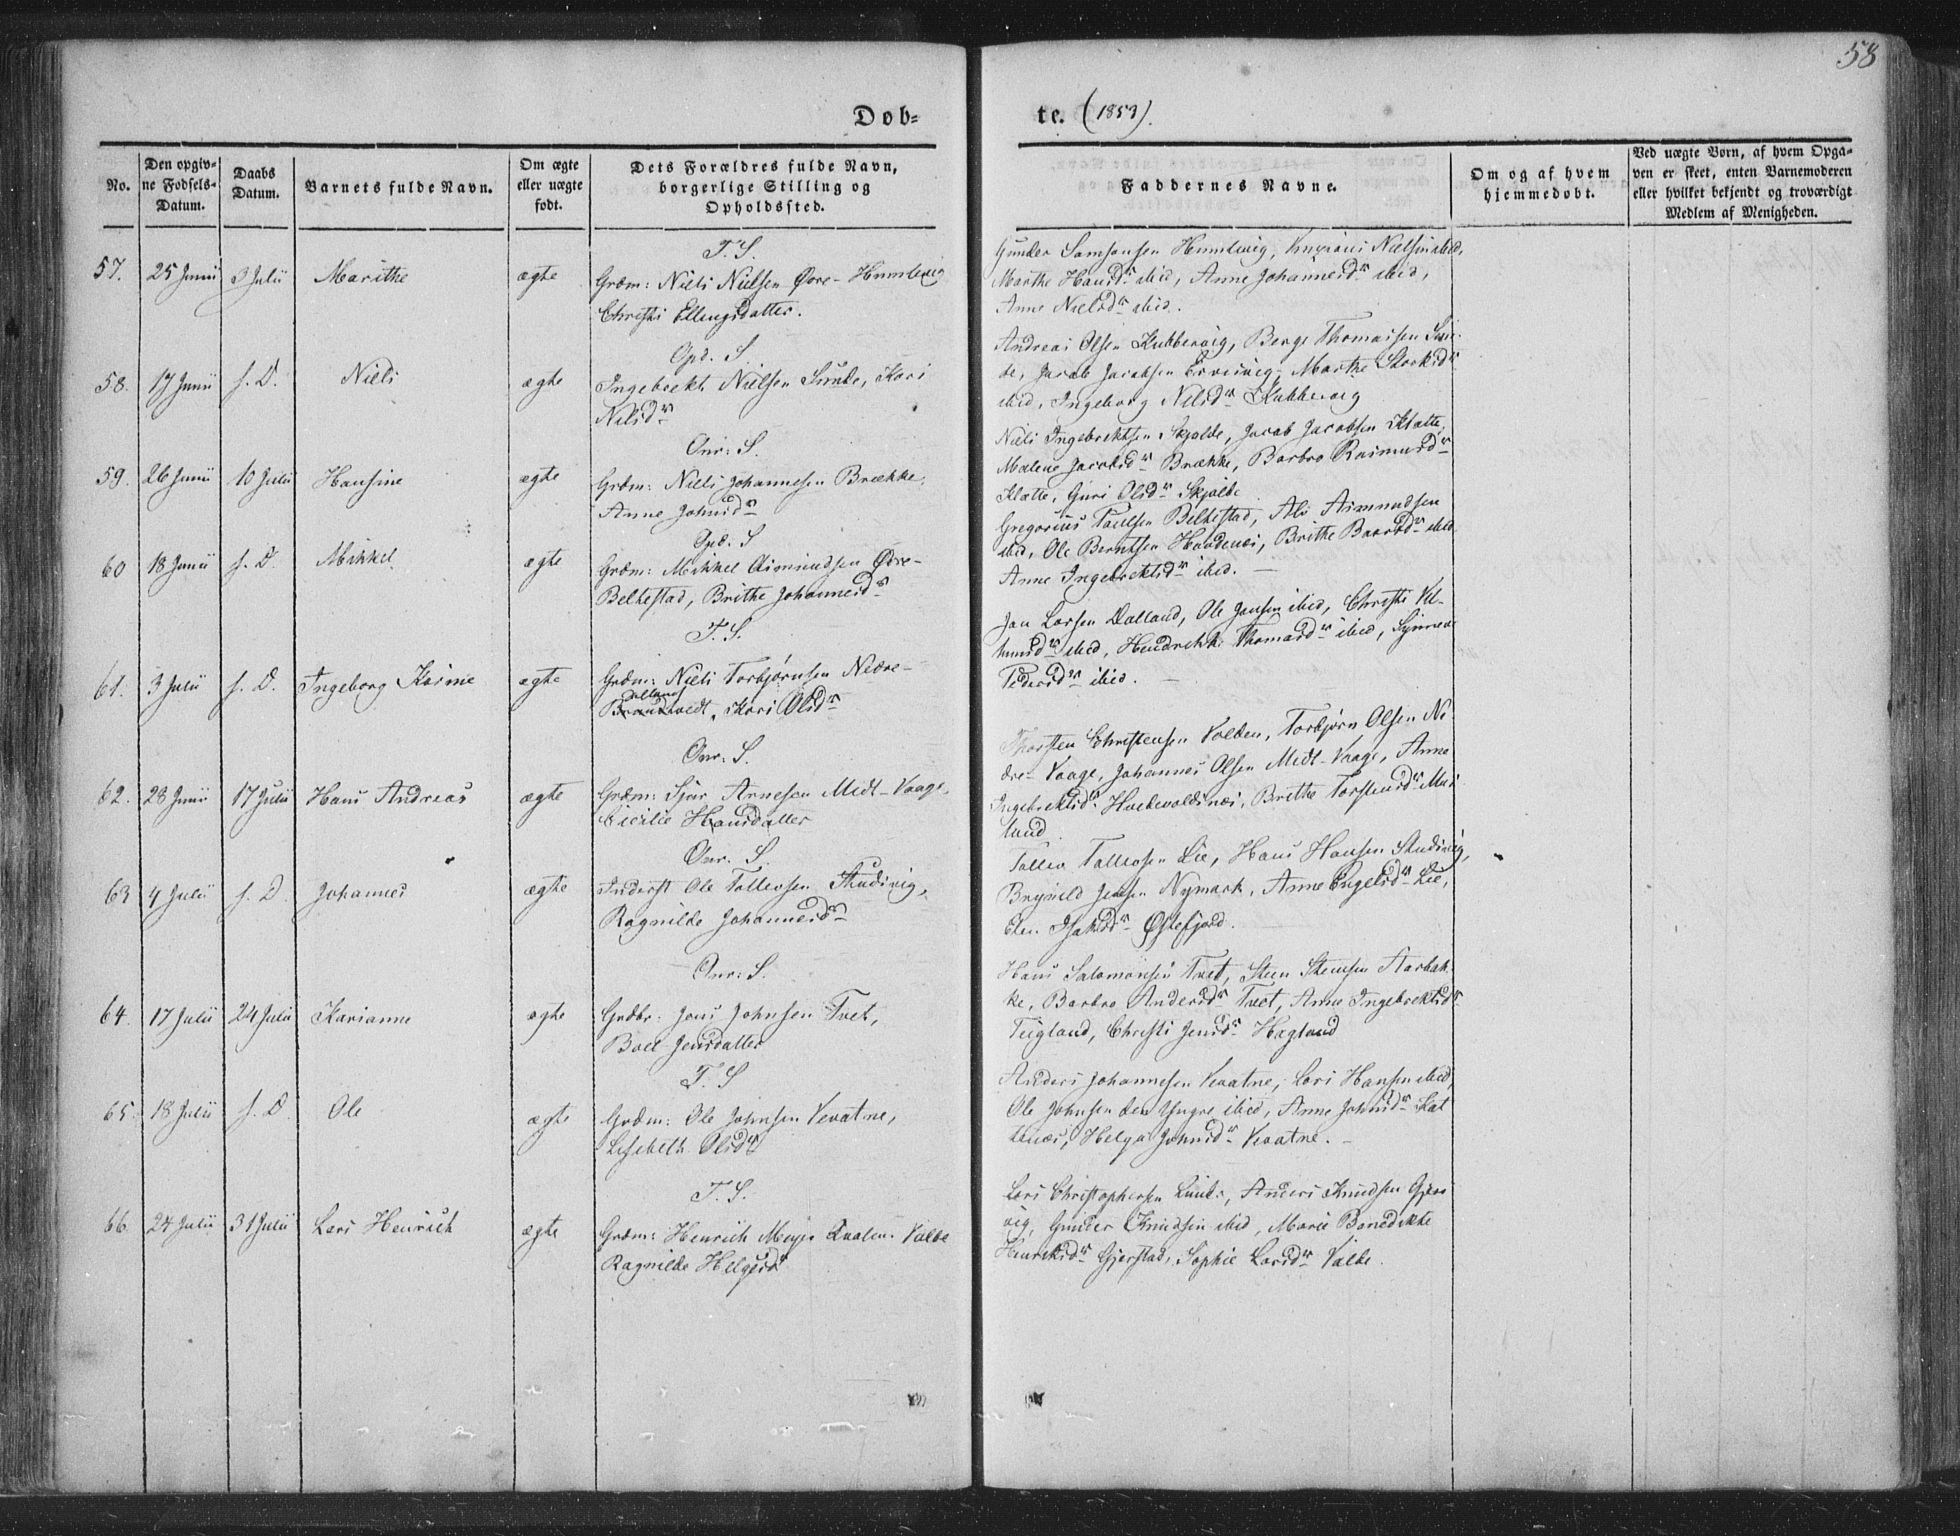 58
Døb-
te. (1853).
No.
Den opgiv-
ne Fødsels-
Datum.
Daabs
Datum.
Barnets fulde Navn.
Om ægte
eller uægte
født.
Dets Forældres fulde Navn,
borgerlige Stilling og
Opholdssted.
Faddernes Navne.
Om og af hvem
hjemmedøbt.
Ved uægte Børn, af hvem Opga-
ven er skeet, enten Barnemoderen
eller hvilket bekjendt og troværdigt
Medlem af Menigheden.
T. S.
57. 25 Junii 3 Julii Marithe ægte Grdm: Niels Nielsen Øvre-Humlevig
Christi Ellingsdatter.
Gunder Samsonsen Humlevig, Nielsen ibid,
Marthe Hansdr ibid, Anne Johannesdr ibid,
Anne Nielsdr ibid.
Opd. S.
58. 17 Junii f. D. Niels ægte Ingebrekt Nielsen Sunde, Kari
Nilsdr
Andreas Olsen Kubbervig, Berge Thomassen Sun-
de, Jacob Jacobsen Ervesvig, Marthe
ibid, Ingeborg Nilsdr Kubbervig
Onr: S.
59. 26 Junii 10 Julii Hansine ægte Grdm: Niels Johannesen Brække,
Anne Johnsdr
Niels Ingebrektsen Skjolde, Jacob Jacobsen Klatte,
Malene Jacobsdr Brække, Barbro Rasmusdr
Klatte, Guri Olsdr Skjolde
Opd. S
60 18 Junii f. D. Mikkel ægte Grdm: Mikkel Asmundsen Øvre-
Belkestad, Brithe Johannesdr
Gregorius Paulsen Belkestad, Als Asmundsen
ibid, Ole Berntsen Haadenæs, Brithe Baardsdr ibid
Anne Ingebrektsdr ibid. —
T. S.
61. 3 Julii f. D. Ingeborg Karine ægte Grdm: Niels Torbjørnsen Nedre-
Dalland
Brandtvedt, Kari Olsdr
Jon Larsen Dalland, Ole Jonsen ibid, Christi
ibid, Hendrikke Thomasdr ibid, Synneve
Pedersdr ibid. —
Onr: S.
62. 28 Junii 17 Julii Hans Andreas ægte Grdm: Sjur Arnesen Midt-Vaage,
Cicilie Hansdatter
Thorsten Christensen Volden, Torbjørn Olsen Ne
dre-Vaage, Johannes Olsen Midt-Vaage, Anna
Ingebrektsdr Hustvoldsnæs, Brithe Torstensdr
land
Onr. S.
63 4 Julii f. D. Johannes ægte Inderst Ole Tollevsen Studevig,
Ragnilde Johannesdr
Tollev Tollevsen Lie, Hans Hansen Studevig,
Brynild Jensen Nymark, Anne Engelsdr Lie,
Elen Isaksdr Østefjord.
Onr: S.
64. 17 Julii 24 Julii Karianne ægte Grdbr: Jens Johnsen Tvet,
Boel Jensdatter
Hans Salomonsen Tvet, Steen Steensen Aarbak-
ke, Barbro Andersdr Tvet, Anne Ingebrektsdr
Tegland, Christi Jensdr Hagland
T. S
65. 18 Julii f. D. Ole ægte Grdm: Ole Johnsen Vevatne,
Lisebeth Olsdr
Anders Johannesen Vevatne, Lars Hansen ibid,
Ole Johnsen den Yngre ibid, Anne Johnsdr Kat
tenæs, Helga Johnsdr Vevatne. —
T. S.
66. 24 Julii 31 Julii Lars Henrich ægte Grdm: Henrich Meyer Qvalen Valde
Ragnilde Helgesdr
Lars Christophersen Lunde, Anders Knudsen Gjers
vig, Gunder Knudsen ibid, Marie Benedikte
Henriksdr Gjerstad, Sophie Larsdr Valde.